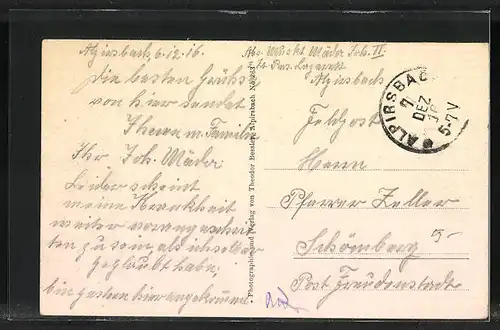 Alpirsbach, 6.12.16.
Die besten Grüße
von hier sendet
Ihnen u. Familie
Ihr Joh. Mäder
Leider scheint
meine Krankheit
weiter vorangeschrit-
ten zu sein als ich selber
geglaubt habe,
bin gestern hier angekommen
Photographie und Verlag von Theodor Bessler, Alpirsbach
Abs. Mäder Joh. II.
Res. Lazarett
Alpirsbach
Feldpost
ALPIRSBACH
7
DEZ
5-7V
Herrn
Pfarrer Zeller
Schömberg
Post Freudenstadt